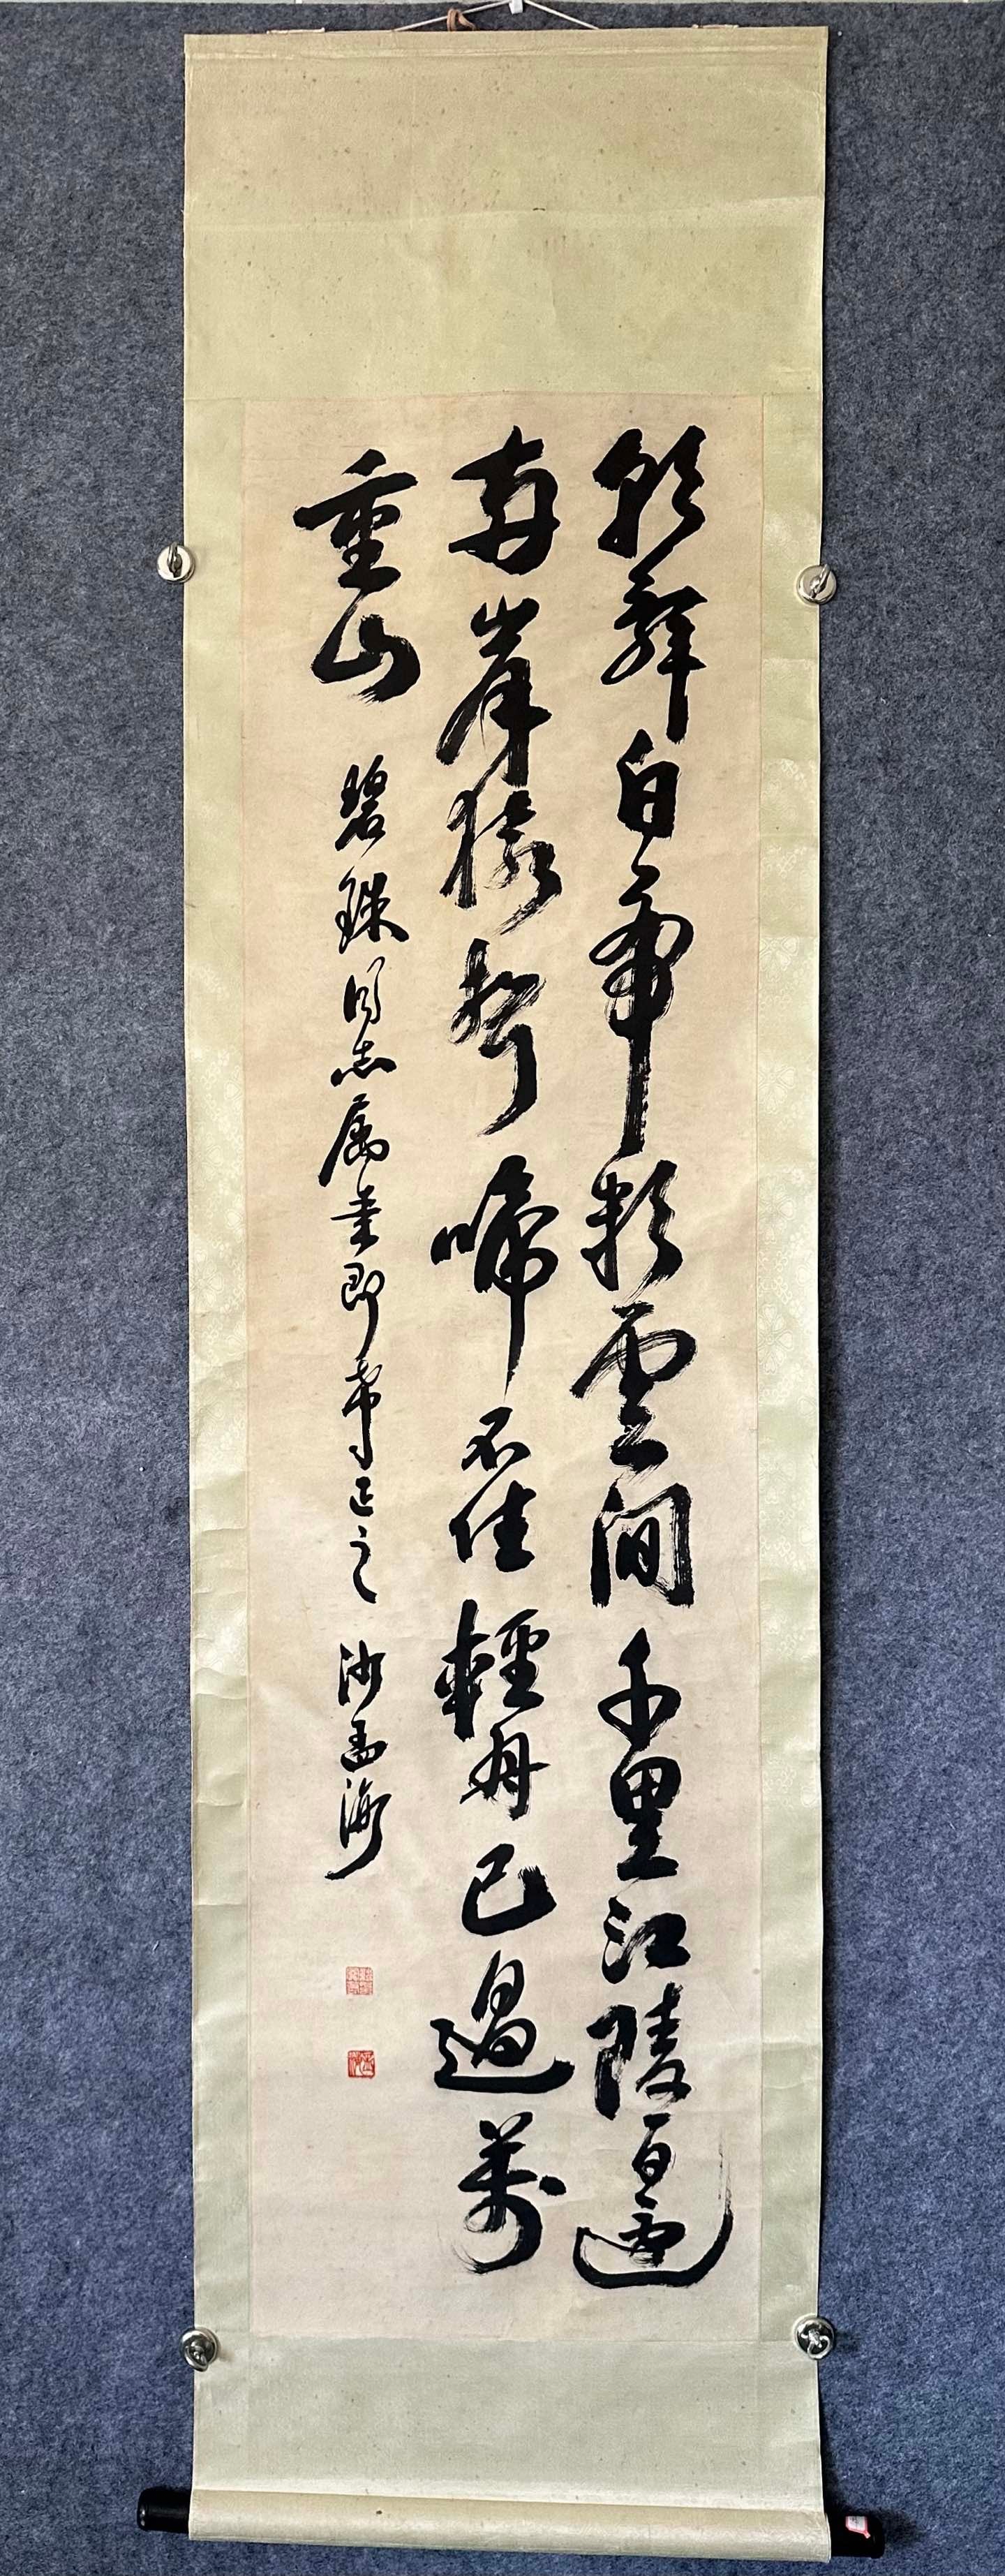 朝辭白帝彩雲間千里江陵一日還
兩岸猿聲啼不住輕舟已過萬
重山 碧銖同志属書即希正之 沙孟海